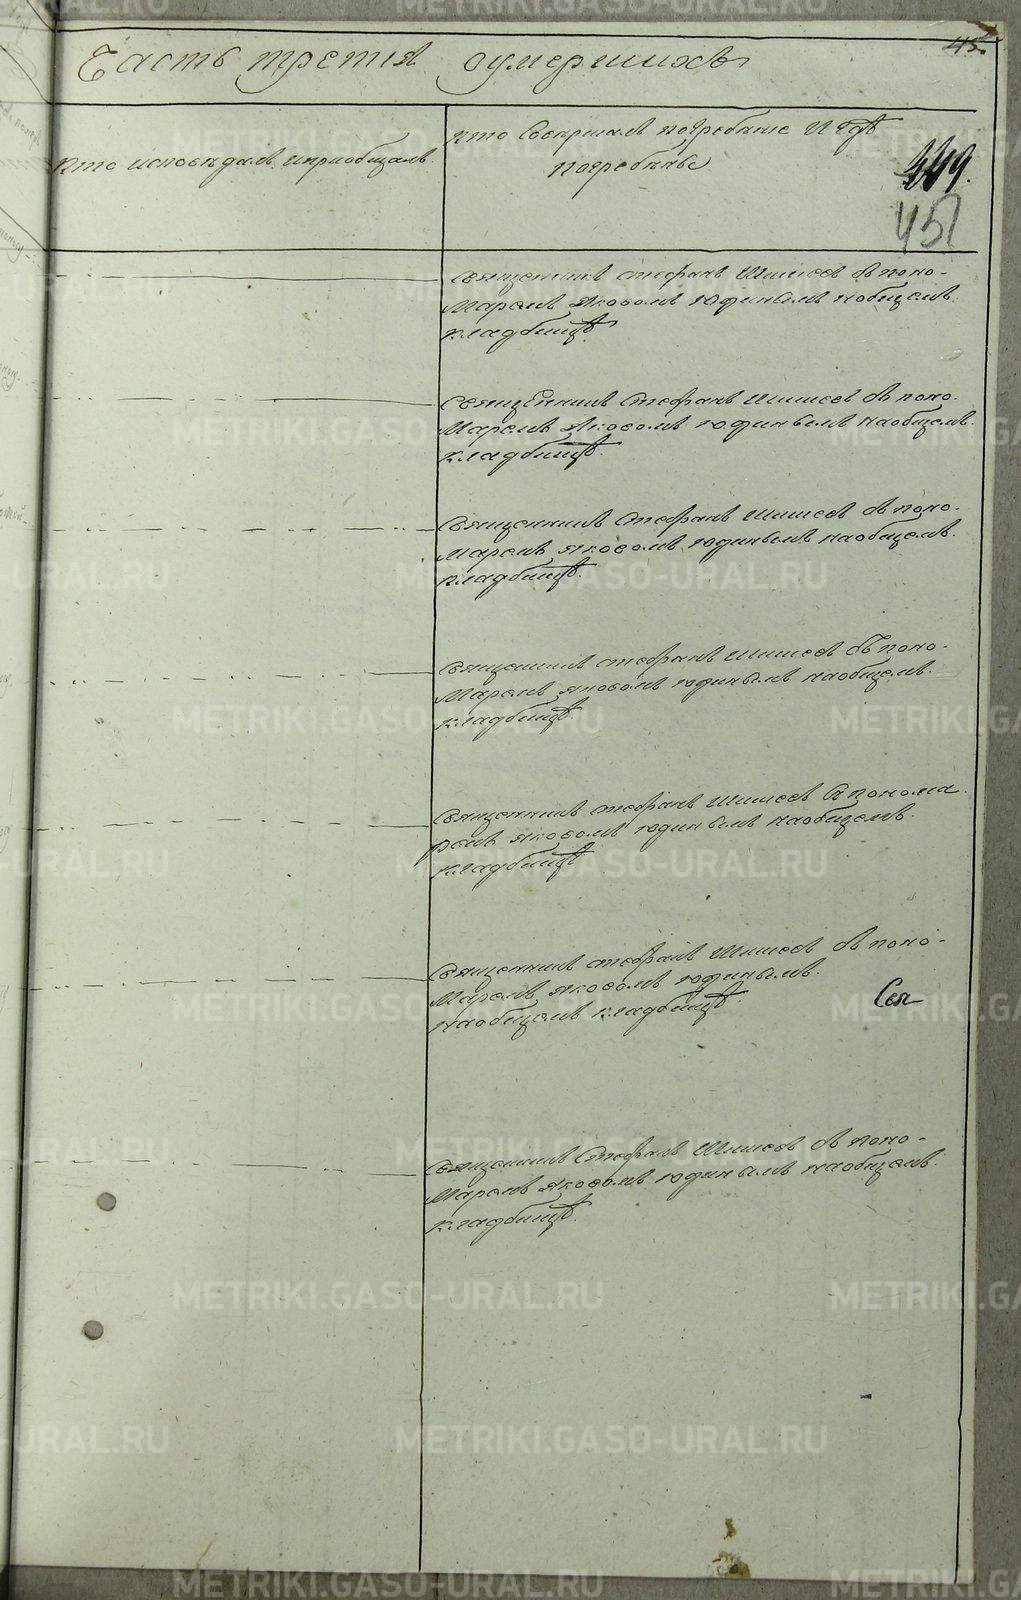 45.
Часть третия оумершихъ
Кто исповѣдалъ и приобщалъ
Кто Совершалъ погребѣние И Гдѣ
погребѣны
449.
451
Священникъ Стефанъ Шишевъ съ поно-
Маремъ Яковомъ Юдинымъ на общемъ
кладбищѣ.
Священникъ Стефанъ Шишевъ съ поно-
Маремъ Яковомъ Юдинымъ на общемъ
кладбищѣ.
Священникъ Стефанъ Шишевъ съ поно-
Маремъ Яковомъ Юдинымъ на общемъ
кладбищѣ.
Священникъ Стефанъ Шишевъ съ поно-
Маремъ Яковомъ Юдинымъ на общемъ
кладбищѣ.
Священникъ Стефанъ Шишевъ съ понома
ремъ Яковомъ Юдинымъ на общемъ
кладбищѣ
Священникъ Стефанъ Шишевъ съ поно-
Маремъ Яковомъ Юдинымъ
на общемъ кладбищѣ.
Свя
Священникъ Стефанъ Шишевъ съ поно-
Маремъ Яковомъ Юдинымъ на общемъ
кладбищѣ.
METRIKI.GASO-URAL.RU